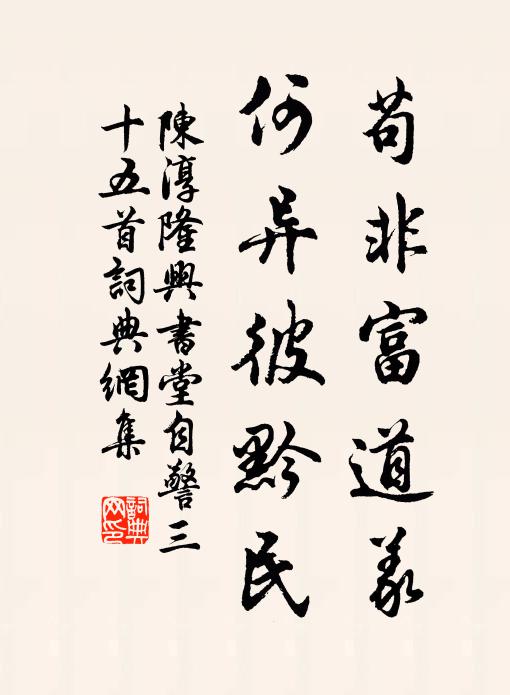 苟非富道義
何异彼黔民
陳淳隆興書堂自警三
十五首詞典網集
詞典
网印